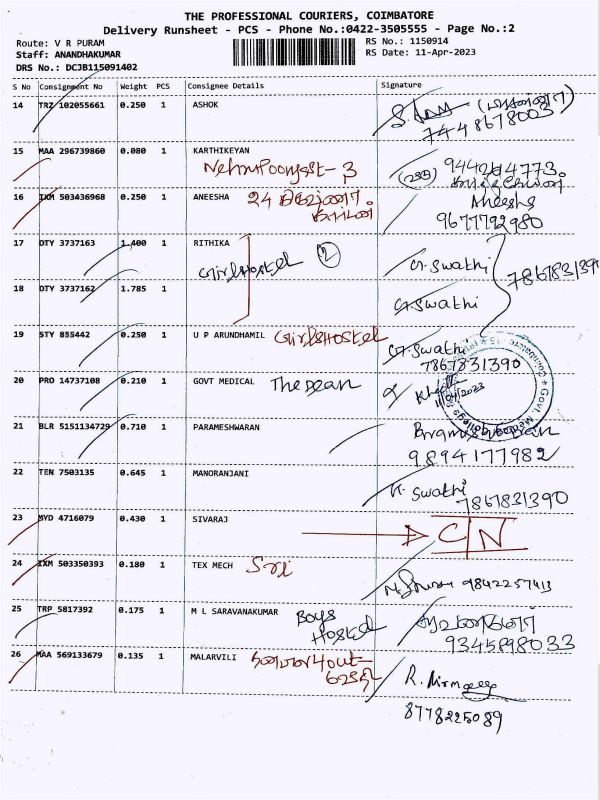 THE PROFESSIONAL COURIERS, COIMBATORE
Delivery Runsheet - PCS - Phone No.:0422-3505555 - Page No.:2
Route: V R PURAM
RS No.: 1150914
Staff: ANANDHAKUMAR
RS Date: 11-Apr-2023
DRS No.: DCJB115091402
S No Consignment No Weight PCS Consignee Details Signature
14 TRZ 102055661 0.250 1 ASHOK
7448678003
15 MAA 296739860 0.080 1 KARTHIKEYAN
- 3
16 IXM 503436968 0.250 1 ANEESHA 24
Aneesha
9677792980
17 DTY 3737163 1.400 1 RITHIKA
Girls Hostel 2 G. Swathi 7867831390
18 DTY 3737162 1.785 1
G. Swathi
19 STY 855442 0.250 1 U P ARUNDHAMIL Girls Hostel
G. Swathi
7867831390
20 PRO 14737108 0.210 1 GOVT MEDICAL The Dean
11/04/2023
21 BLR 5151134729 0.710 1 PARAMESHWARAN
9894177982
22 TEN 7503135 0.645 1 MANORANJANI
Swathi
7867831390
23 MYD 4716079 0.430 1 SIVARAJ C/N
24 IXM 503350393 0.180 1 TEX MECH Sri
9842257413
25 TRP 5817392 0.175 1 M L SARAVANAKUMAR Boys
Hostel
9345898033
26 MAA 569133679 0.135 1 MALARVILI
8778225089